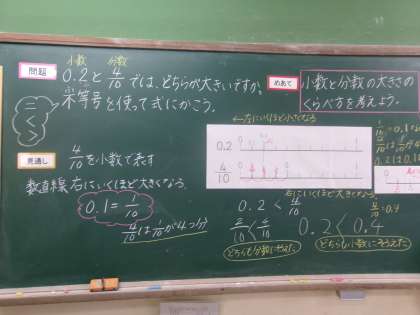 問題
小数 分数
0.2と4/10では、どちらが大きいですか。
不等号を使って式にかこう。
＝
＜
＞
めあて
小数と分数の大きさの
くらべ方を考えよう。
見通し
4/10を小数で表す
数直線 右にいくほど大きくなる。
0.1＝1/10
4/10は1/10が4つ分
←左にいくほど小さくなる
0.2 0 1
4/10 0 1
右にいくほど大きくなる→
0.2＜4/10
2/10＜4/10
どちらも分数にそろえた
0.2＜0.4
どちらも小数にそろえた
4/10＝0.4